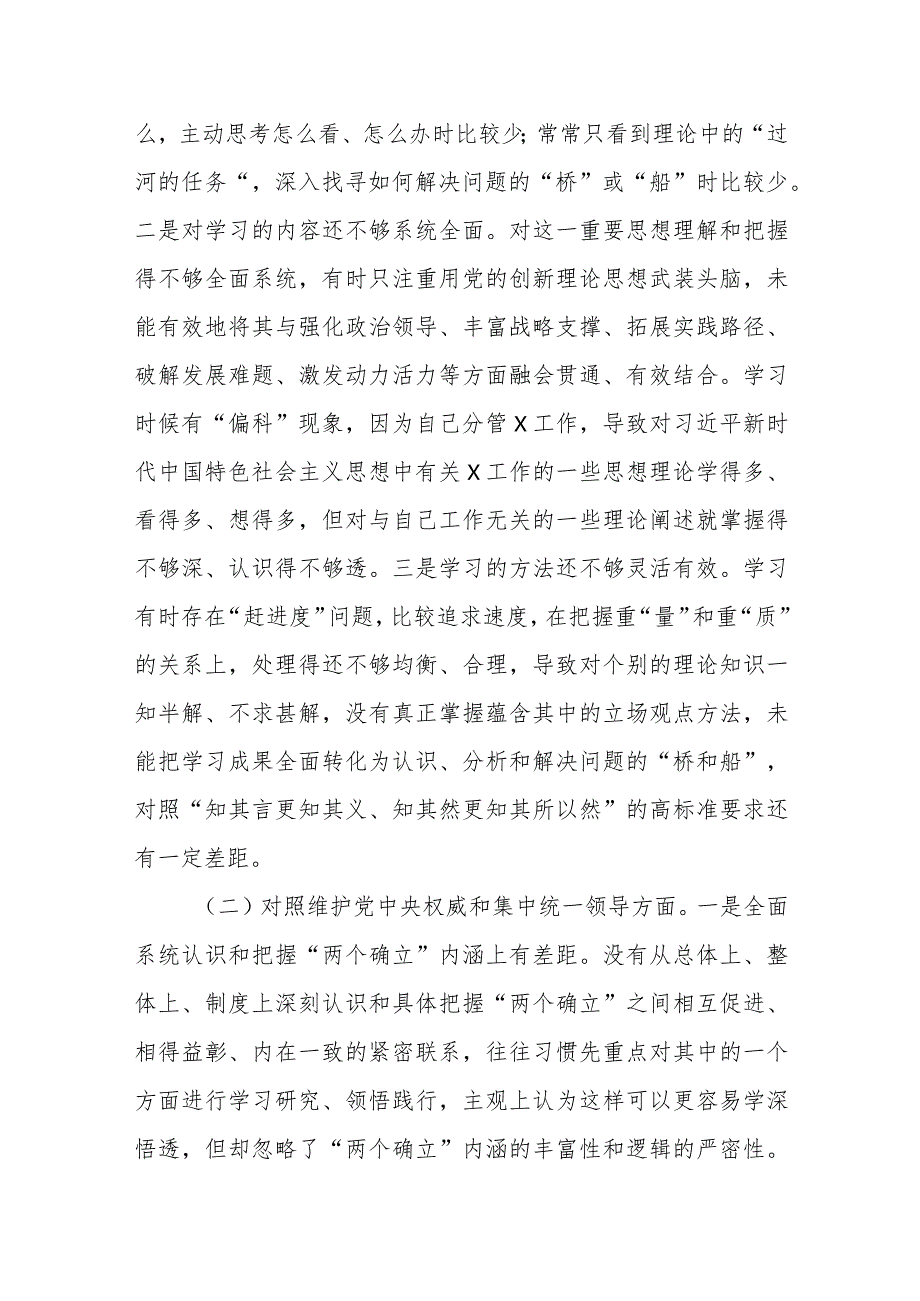 么，主动思考怎么看、怎么办时比较少；常常只看到理论中的“过
河的任务“，深入找寻如何解决问题的“桥”或“船”时比较少。
二是对学习的内容还不够系统全面。对这一重要思想理解和把握
得不够全面系统，有时只注重用党的创新理论思想武装头脑，未
能有效地将其与强化政治领导、丰富战略支撑、拓展实践路径、
破解发展难题、激发动力活力等方面融会贯通、有效结合。学习
时候有“偏科”现象，因为自己分管X工作，导致对习近平新时
代中国特色社会主义思想中有关X工作的一些思想理论学得多、
看得多、想得多，但对与自己工作无关的一些理论阐述就掌握得
不够深、认识得不够透。三是学习的方法还不够灵活有效。学习
有时存在“赶进度”问题，比较追求速度，在把握重“量”和重“质”
的关系上，处理得还不够均衡、合理，导致对个别的理论知识一
知半解、不求甚解，没有真正掌握蕴含其中的立场观点方法，未
能把学习成果全面转化为认识、分析和解决问题的“桥和船”，
对照“知其言更知其义、知其然更知其所以然”的高标准要求还
有一定差距。
（二）对照维护党中央权威和集中统一领导方面。一是全面
系统认识和把握“两个确立”内涵上有差距。没有从总体上、整
体上、制度上深刻认识和具体把握“两个确立”之间相互促进、
相得益彰、内在一致的紧密联系，往往习惯先重点对其中的一个
方面进行学习研究、领悟践行，主观上认为这样可以更容易学深
悟透，但却忽略了“两个确立”内涵的丰富性和逻辑的严密性。